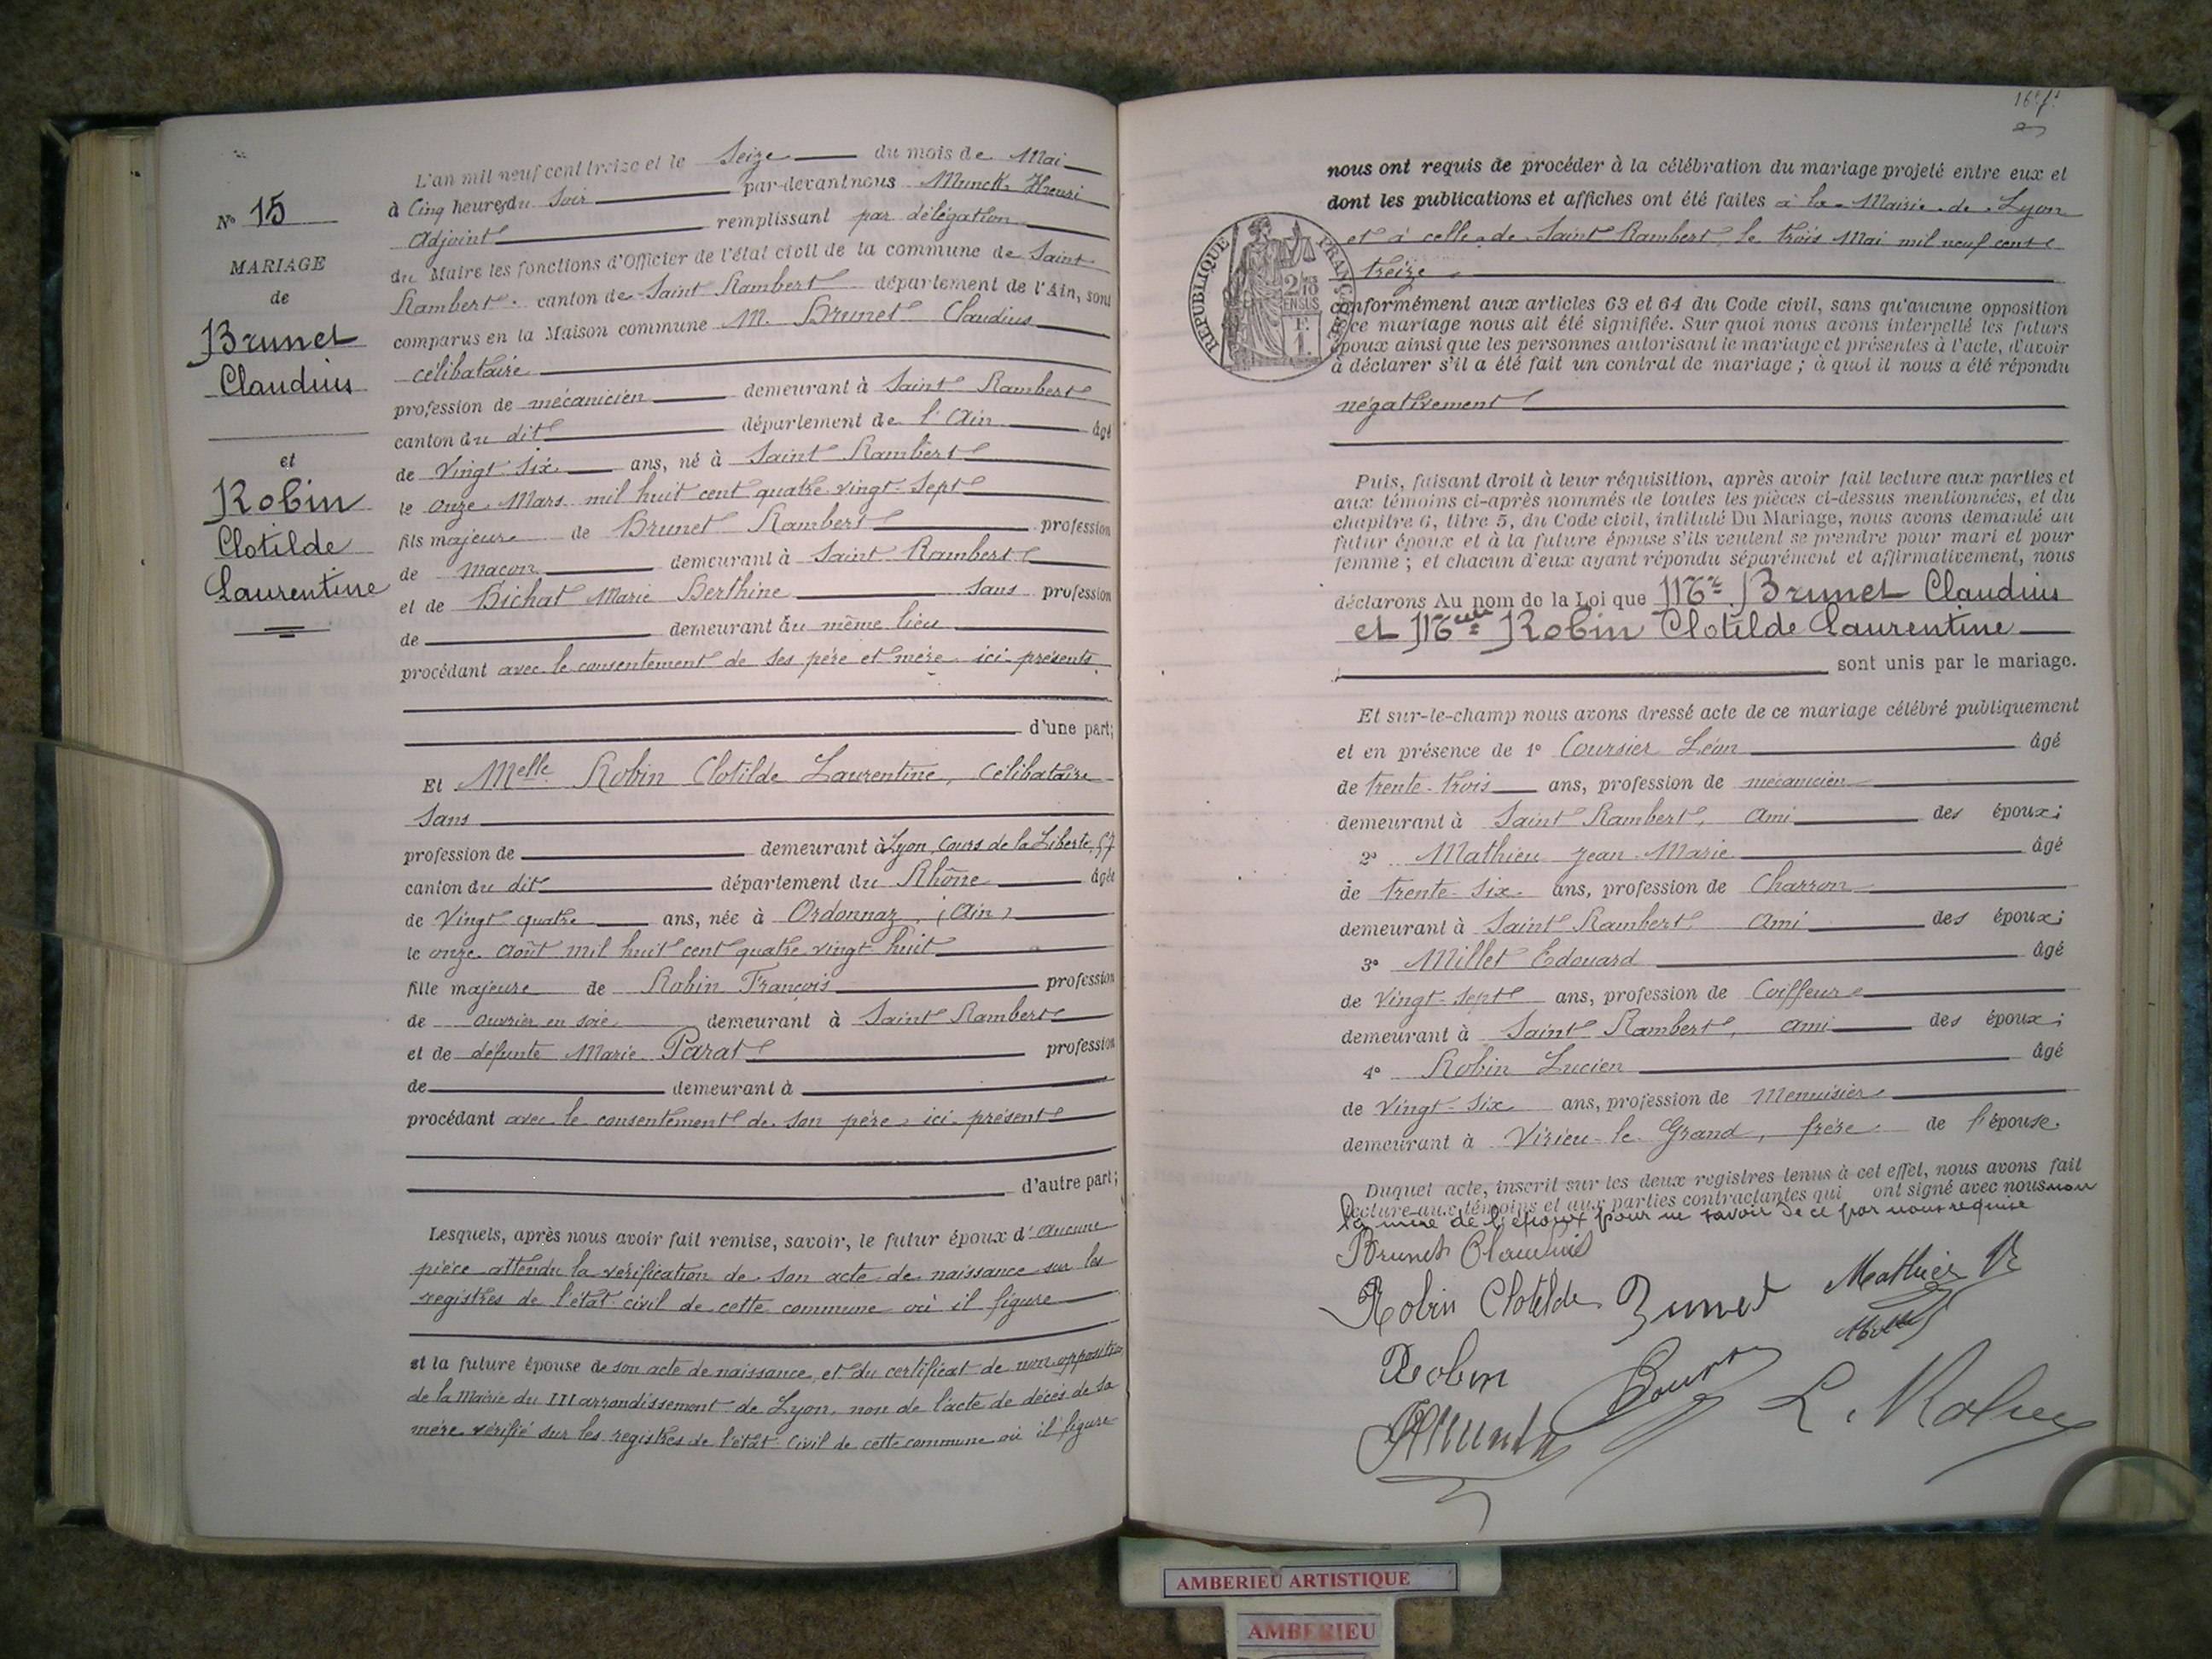 N° 15
MARIAGE
de
Brunet
Claudius
et
Robin
Clotilde
Laurentine
L'an mil neuf cent treize et le Seize du mois de Mai
à Cinq heures du Soir par-devant nous Munck Henri
Adjoint remplissant par délégation
du Maire les fonctions d'Officier de l'état civil de la commune de Saint
Rambert. canton de Saint Rambert département de l'Ain, sont
comparus en la Maison commune M. Brunet Claudius
célibataire
profession de mécanicien demeurant à Saint Rambert
canton du dit département de l'Ain âgé
de Vingt Six ans, né à Saint Rambert
le onze Mars mil huit cent quatre vingt-Sept
fils majeur de Brunet Rambert profession
de maçon demeurant à Saint Rambert
et de Bichat Marie Berthine Sans profession
de demeurant au même lieu
procédant avec le consentement de ses père et mère ici présents
d'une part;
Et Melle Robin Clotilde Laurentine, Célibataire
Sans
profession de demeurant à Lyon, Cours de la Liberté, 57
canton du dit département du Rhône âgée
de Vingt quatre ans, née à Ordonnaz, (Ain)
le onze Août mil huit cent quatre vingt huit
fille majeure de Robin François profession
de ouvrier en soie demeurant à Saint Rambert
et de défunte Marie Parat profession
de demeurant à
procédant avec le consentement de son père, ici présent
d'autre part;
Lesquels, après nous avoir fait remise, savoir, le futur époux d'aucune
pièce attendu la vérification de son acte de naissance sur les
registres de l'état civil de cette commune où il figure
et la future épouse de son acte de naissance, et du certificat de non opposition
de la Mairie du III arrondissement de Lyon, non de l'acte de décès de sa
mère vérifié sur les registres de l'état-Civil de cette commune où il figure
nous ont requis de procéder à la célébration du mariage projeté entre eux et
dont les publications et affiches ont été faites à la Mairie de Lyon
et à celle de Saint Rambert, le trois Mai mil neuf cent
treize
RÉPUBLIQUE FRANÇAISE
conformément aux articles 63 et 64 du Code civil, sans qu'aucune opposition
à ce mariage nous ait été signifiée. Sur quoi nous avons interpellé les futurs
époux ainsi que les personnes autorisant le mariage et présentes à l'acte, d'avoir
à déclarer s'il a été fait un contrat de mariage; à quoi il nous a été répondu
négativement
Puis, faisant droit à leur réquisition, après avoir fait lecture aux parties et
aux témoins ci-après nommés de toutes les pièces ci-dessus mentionnées, et du
chapitre 6, titre 5, du Code civil, intitulé Du Mariage, nous avons demandé au
futur époux et à la future épouse s'ils veulent se prendre pour mari et pour
femme; et chacun d'eux ayant répondu séparément et affirmativement, nous
déclarons Au nom de la Loi que Mr. Brunet Claudius
et Melle Robin Clotilde Laurentine
sont unis par le mariage.
Et sur-le-champ nous avons dressé acte de ce mariage célébré publiquement
et en présence de 1° Coursier Léon âgé
de trente-trois ans, profession de mécanicien
demeurant à Saint Rambert, ami des époux;
2° Mathieu Jean-Marie âgé
de trente-six ans, profession de Charron
demeurant à Saint Rambert, ami des époux;
3° Millet Edouard âgé
de Vingt-sept ans, profession de Coiffeur
demeurant à Saint Rambert, ami des époux;
4° Robin Lucien âgé
de Vingt-Six ans, profession de Menuisier
demeurant à Virieu-le-Grand, frère de l'épouse.
Duquel acte, inscrit sur les deux registres tenus à cet effet, nous avons fait
lecture aux témoins et aux parties contractantes qui ont signé avec nous non
la mère de l'époux pour ne savoir de ce par nous requise
Brunet Claudius
Robin Clotilde Brunet Mathieu
Robin
L. Robin
AMBERIEU ARTISTIQUE
AMBERIEU